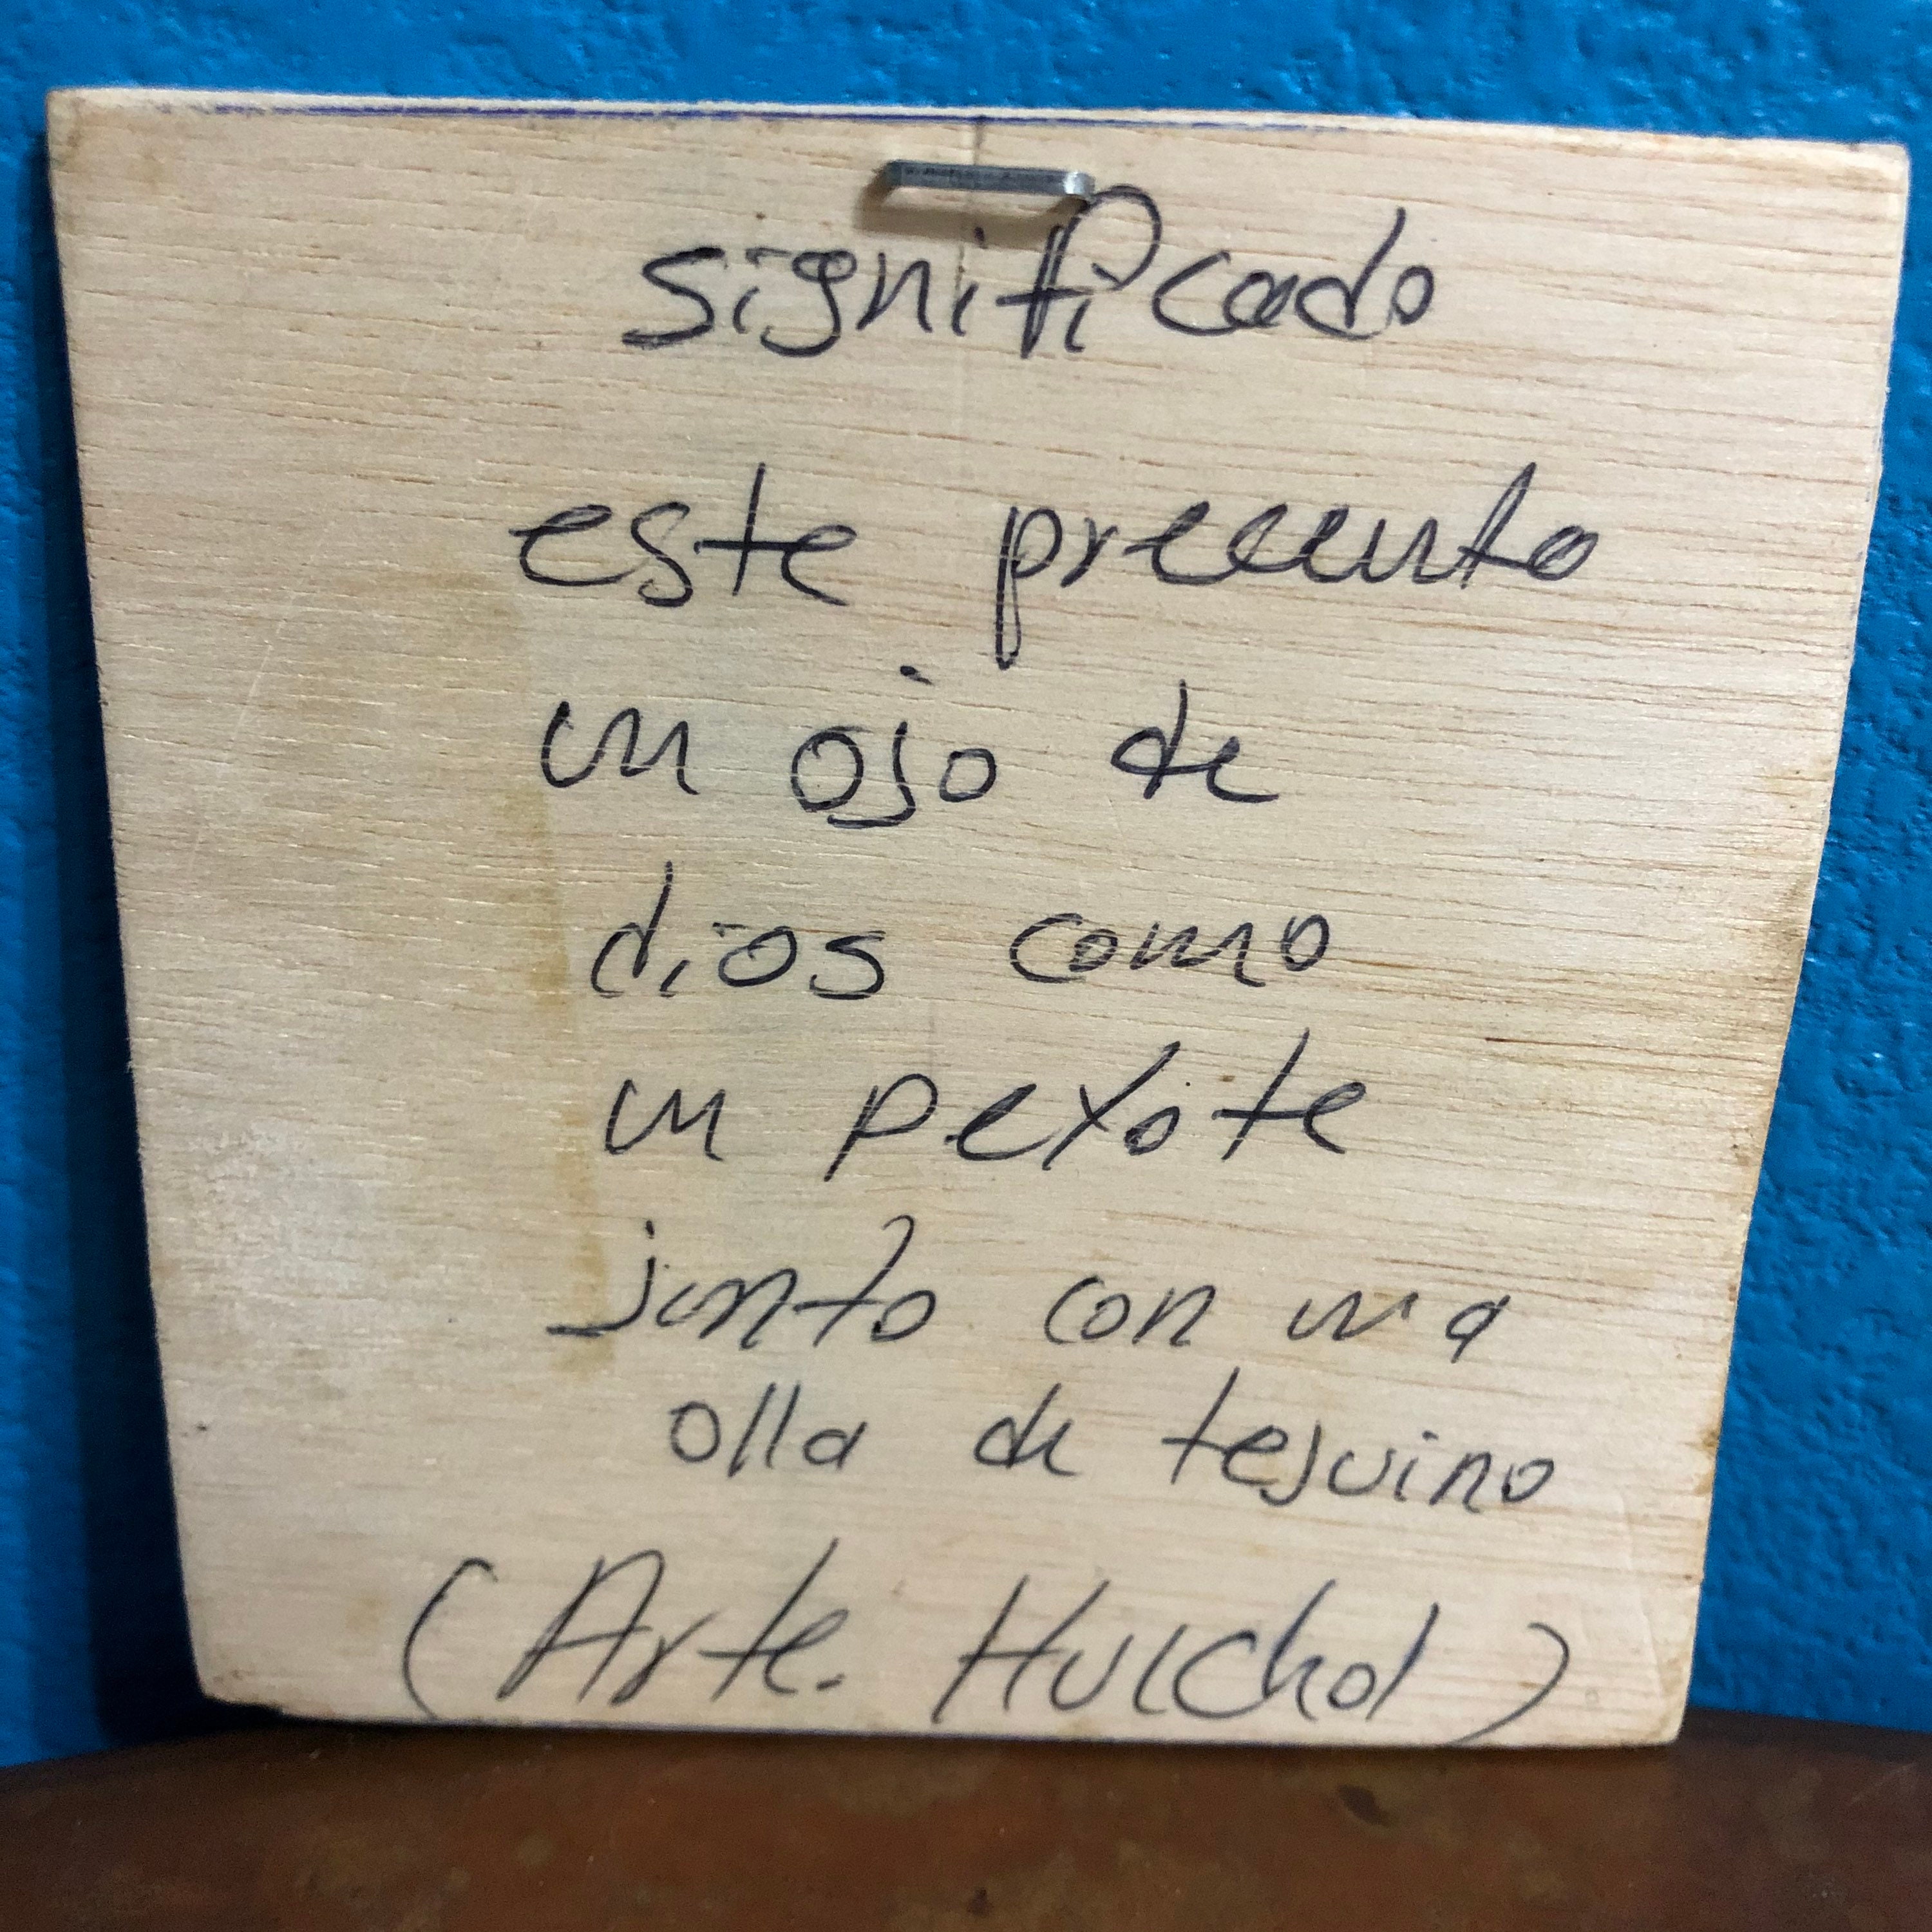 significado
este precento
un ojo de
dios como
un peyote
junto con una
olla de tejuino
(Arte. Huichol)